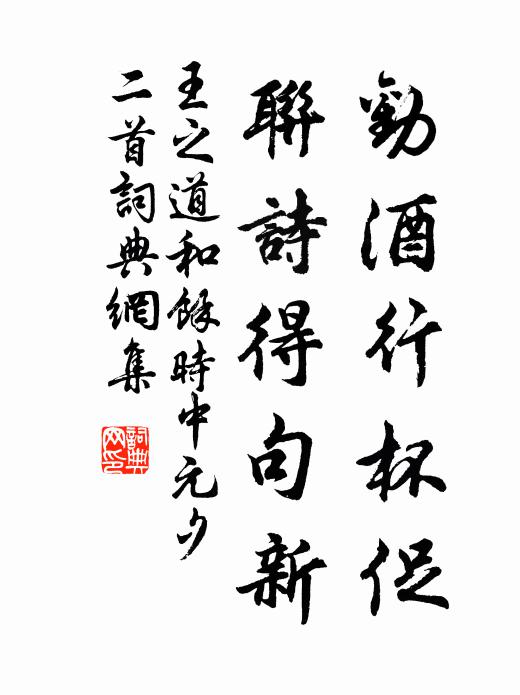 勸酒行杯促
聯詩得句新
王之道和餘時中元夕
二首詞典網集
詞典網印